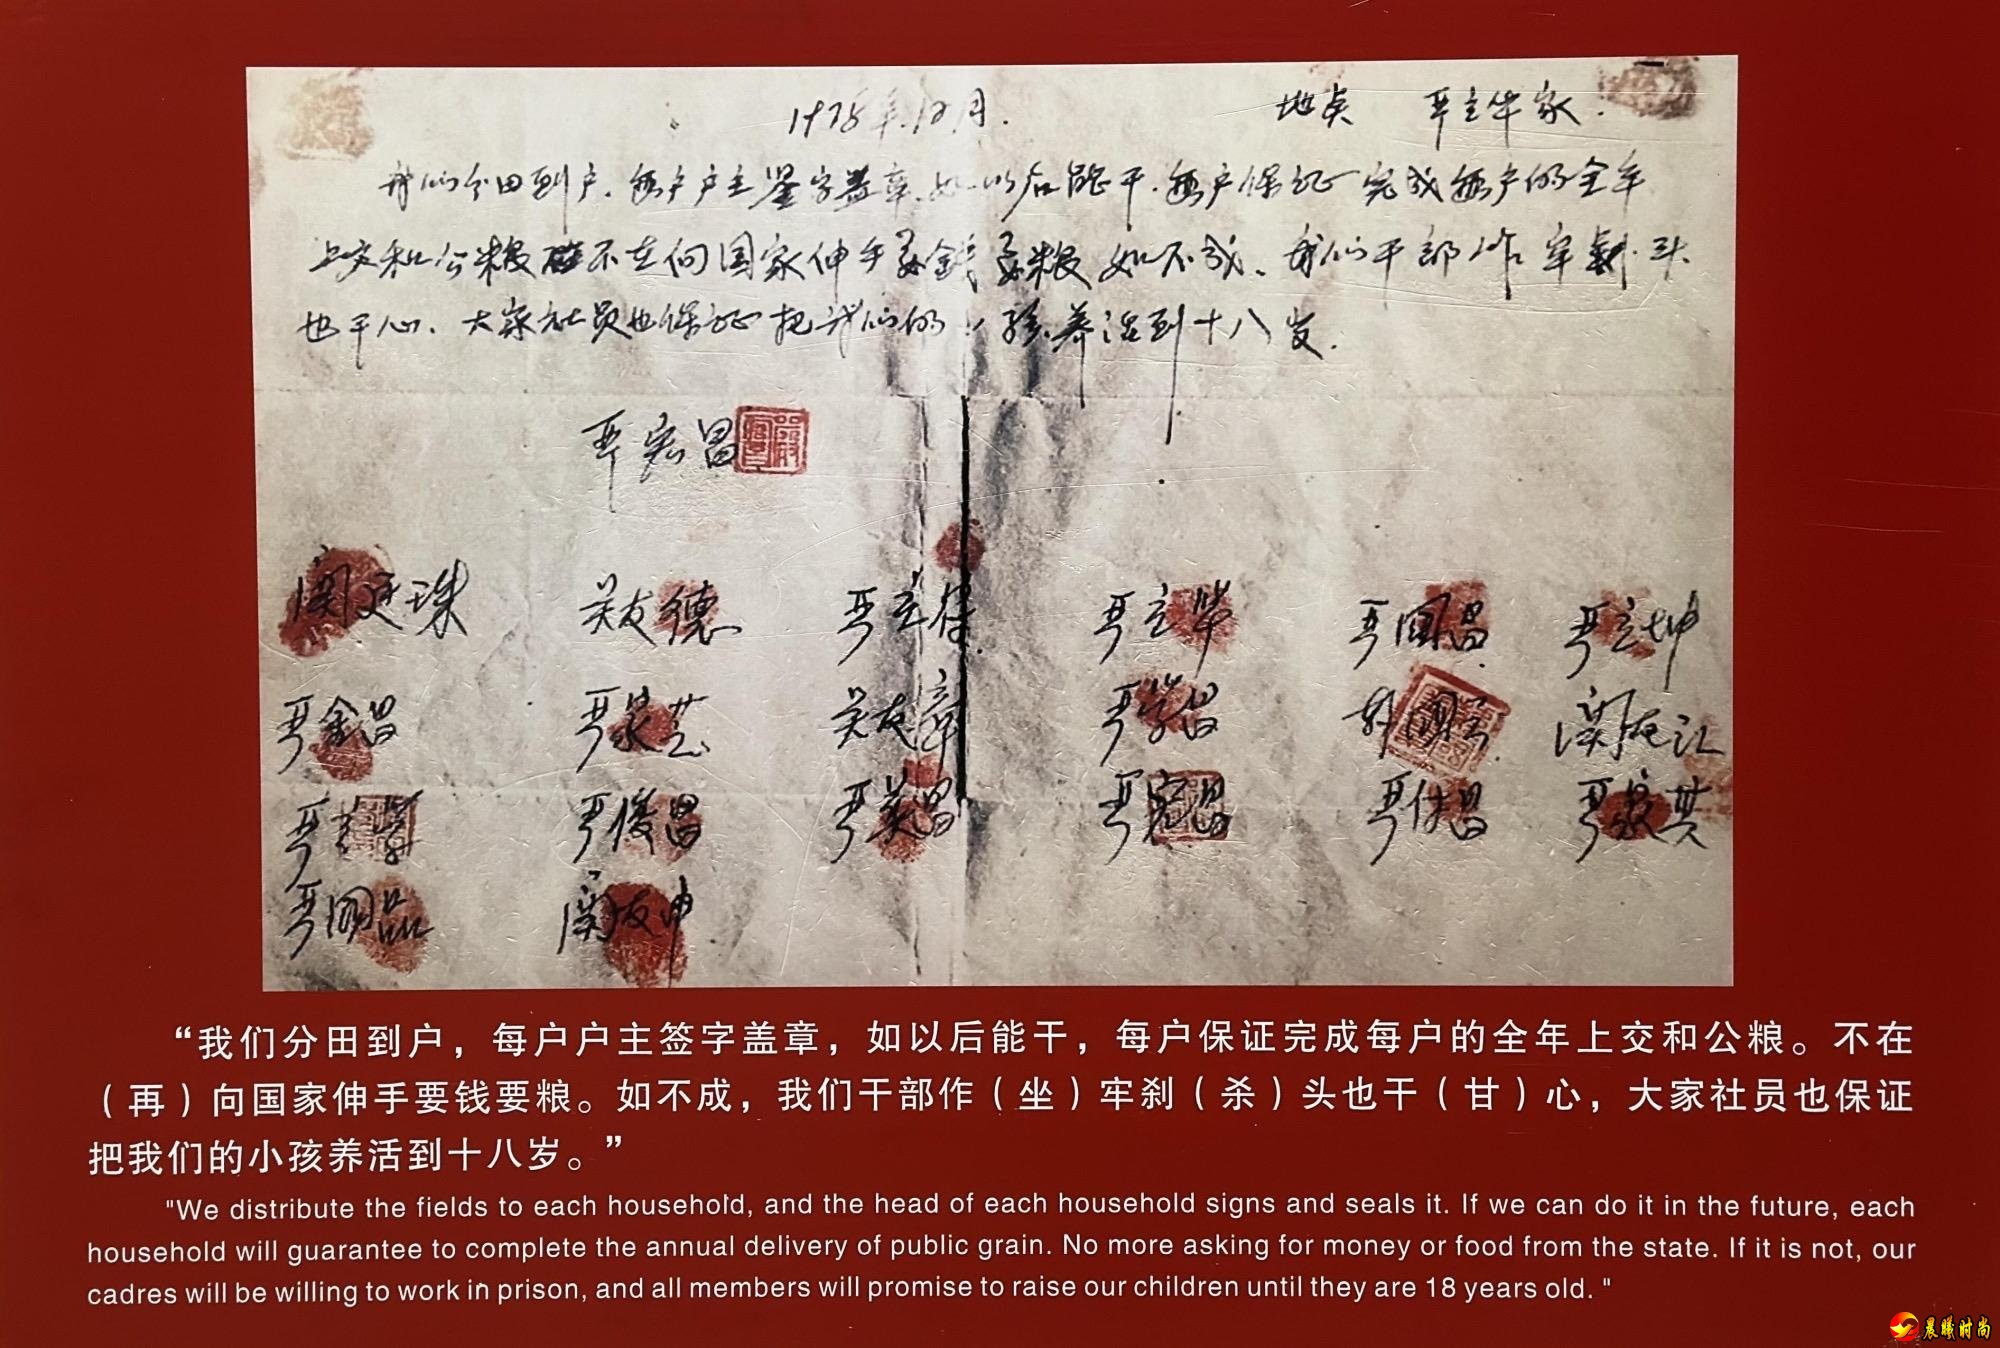 1978年.12月. 地点 严立华家.
我们分田到户.每户户主鉴字盖章.如以后能干.每户保证完成每户的全年
上交和公粮不在向国家伸手要钱要粮如不成、我们干部作牢刹头
也干心、大家社员也保证把我们的小孩养活到十八岁.
严宏昌
关廷珠 关友德 严立符 严立华 严国昌 严立坤
严金昌 严家芝 关友章 严学昌 韩国云 关友江
严立学 严俊昌 严美昌 严宏昌 严付昌 严家其
严国品 关友申
“我们分田到户，每户户主签字盖章，如以后能干，每户保证完成每户的全年上交和公粮。不在
（再）向国家伸手要钱要粮。如不成，我们干部作（坐）牢刹（杀）头也干（甘）心，大家社员也保证
把我们的小孩养活到十八岁。”
"We distribute the fields to each household, and the head of each household signs and seals it. If we can do it in the future, each
household will guarantee to complete the annual delivery of public grain. No more asking for money or food from the state. If it is not, our
cadres will be willing to work in prison, and all members will promise to raise our children until they are 18 years old. "
晨曦时尚